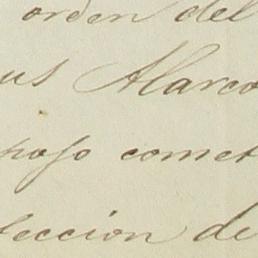 orden del
us Alarco
comet
leccion de